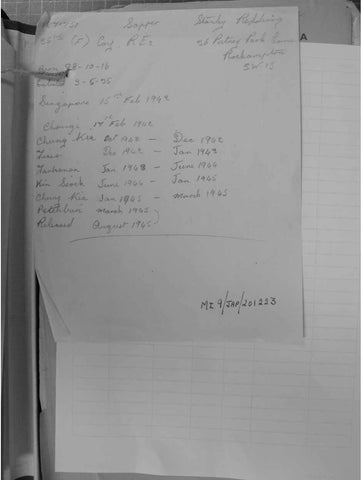 Sapper Stanley Redshing
56th (F) Coy R.E. 56 Putney Park Lane
Roehampton
Born 28-10-16 SW 15
3-5-35
Singapore 15th Feb 1942
Changi Feb 1942
Chung Kia Oct 1942 - Dec 1942
Dec 1942 - Jan 1943
Jan 1943 - June 1944
Kin Seock June 1944 - Jan 1945
Chung Kia Jan 1945 - March 1945
Petchburi March 1945
Released August 1945
MI 9/JAP/201223
A